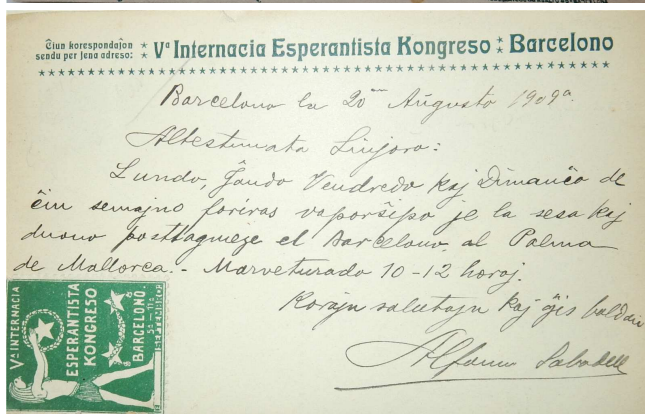 Ĉiun korespondaĵon
sendu per jena adreso:
Vª Internacia Esperantista Kongreso : Barcelono
Barcelono la 20an Aŭgusto 1909a.
Altestimata Sinjoro:
Lundo, Ĵaudo Vendredo kaj Dimanĉo de
ĉiu semajno foriras vaporŝipo je la sesa kaj
duono posttagmeze el Barcelono al Palma
de Mallorca. - Marveturado 10-12 horoj.
Korajn salutojn kaj ĝis baldaŭ
Sabadell
Vª INTERNACIA
ESPERANTISTA
KONGRESO
BARCELONO.
5ª - 11ª
SEPTEMBRO